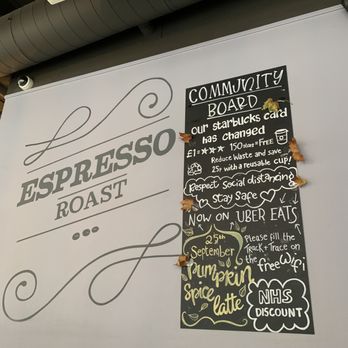 ESPRESSO
ROAST
COMMUNITY
BOARD
our starbucks card
has changed
£1=★★★ 150 stars = FREE
Reduce Waste and save
25p with a reusable cup!
Respect Social distancing
Stay Safe
NOW ON UBER EATS
25th
September
Pumpkin
Spice
latte
Please fill the
Track + Trace on
the free Wifi
NHS
DISCOUNT